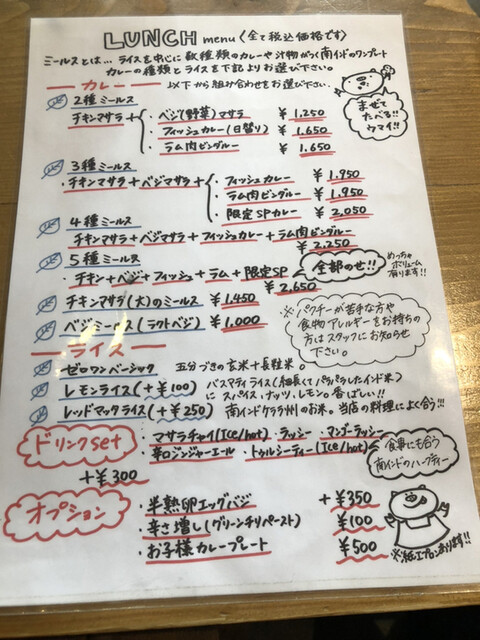 LUNCH menu〈全て税込価格です〉
ミールスとは… ライスを中心に数種類のカレーや汁物がつく南インドのワンプレート
カレーの種類とライスを下記よりお選び下さい。
カレー 以下から組み合わせをお選び下さい。
まぜてたべる!!ウマイ!!
2種ミールス
チキンマサラ+
・ベジ(野菜)マサラ ¥1,250
・フィッシュカレー(日替り) ¥1,650
・ラム肉ビンダルー ¥1,650
3種ミールス
・チキンマサラ+ベジマサラ+
・フィッシュカレー ¥1,950
・ラム肉ビンダルー ¥1,950
・限定SPカレー ¥2,050
4種ミールス
チキンマサラ+ベジマサラ+フィッシュカレー+ラム肉ビンダルー
¥2,250
5種ミールス
・チキン+ベジ+フィッシュ+ラム+限定SP
¥2,650
全部のせ!!
めっちゃボリューム有ります!!
チキンマサラ(大)のミールス ¥1,450
ベジミールス(ラクトベジ) ¥1,000
※パクチーが苦手な方や
食物アレルギーをお持ちの
方はスタッフにお知らせ
下さい。
ライス
ゼロワンベーシック 五分づきの玄米+長粒米。
レモンライス(+¥100) バスマティライス(細長くてパラパラしたインド米)
にスパイス、ナッツ、レモン。香ばしい!!
レッドマッタライス(+¥250) 南インドケララ州のお米。当店の料理によく合う!!
ドリンクset
+¥300
・マサラチャイ(Ice/hot)・ラッシー・マンゴーラッシー
・辛口ジンジャーエール・トゥルシーティー(Ice/hot)
食事にも合う
南インドのハーブティー
オプション
・半熟卵エッグバジ +¥350
・辛さ増し(グリーンチリペースト) ¥100
・お子様カレープレート ¥500
※紙エプロンあります!!